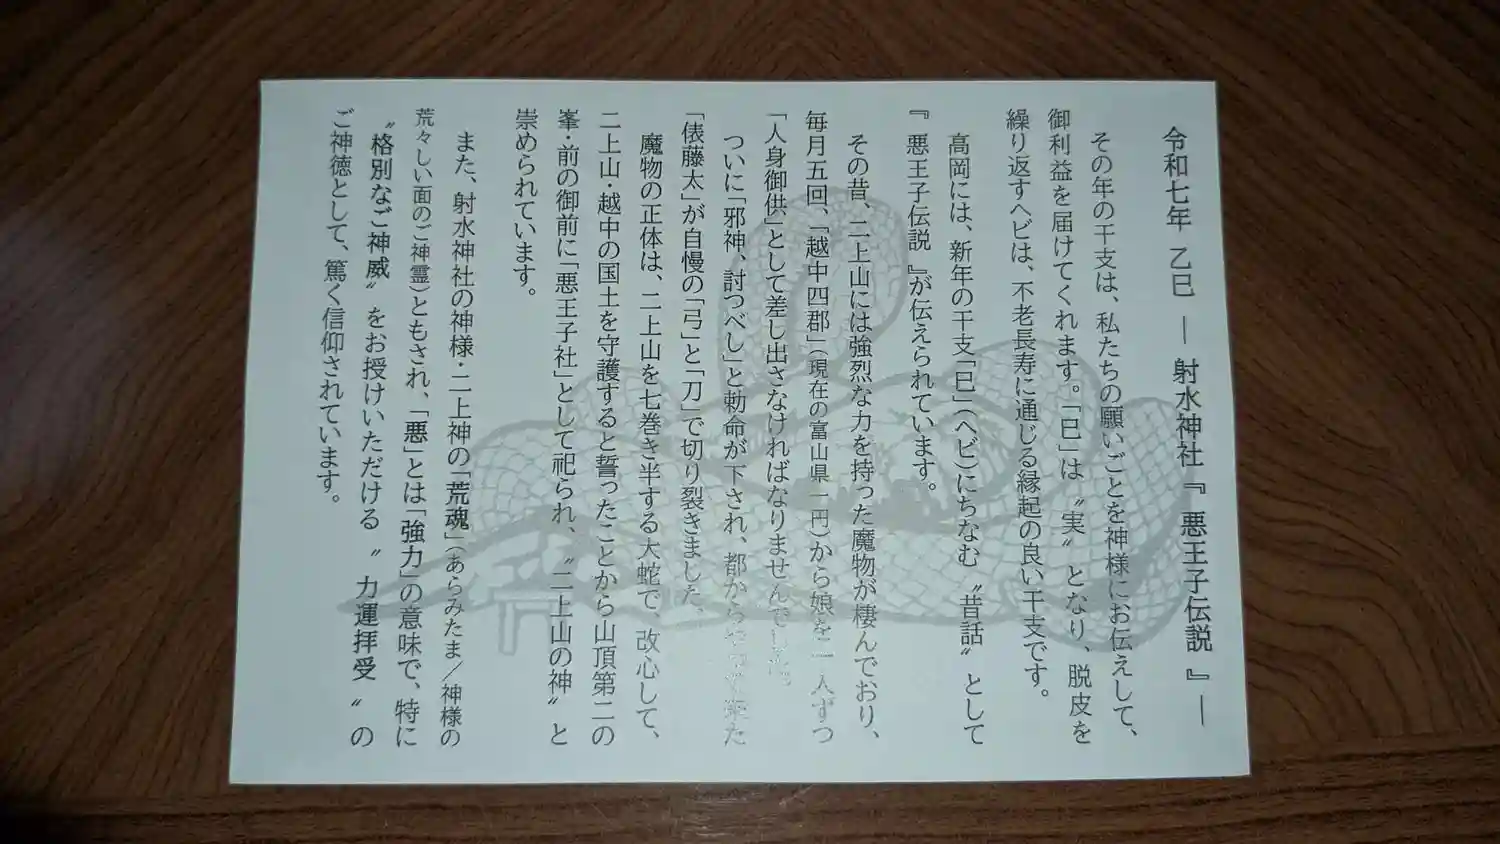 令和七年 乙巳 ― 射水神社『 悪王子伝説 』―
その年の干支は、私たちの願いごとを神様にお伝えして、
御利益を届けてくれます。「巳」は〝実〟となり、脱皮を
繰り返すヘビは、不老長寿に通じる縁起の良い干支です。
高岡には、新年の干支「巳」(ヘビ)にちなむ〝昔話〟として
『 悪王子伝説 』が伝えられています。
その昔、二上山には強烈な力を持った魔物が棲んでおり、
毎月五回、「越中四郡」(現在の富山県一円)から娘を二人ずつ
「人身御供」として差し出さなければなりませんでした。
ついに「邪神、討つべし」と勅命が下され、都からやって来た
「俵藤太」が自慢の「弓」と「刀」で切り裂きました。
魔物の正体は、二上山を七巻き半する大蛇で、改心して、
二上山・越中の国土を守護すると誓ったことから山頂第二の
峯・前の御前に「悪王子社」として祀られ、〝二上山の神〟と
崇められています。
また、射水神社の神様・二上神の「荒魂」(あらみたま/神様の
荒々しい面のご神霊)ともされ、「悪」とは「強力」の意味で、特に
〝格別なご神威〟をお授けいただける〝 力運拝受 〟の
ご神徳として、篤く信仰されています。